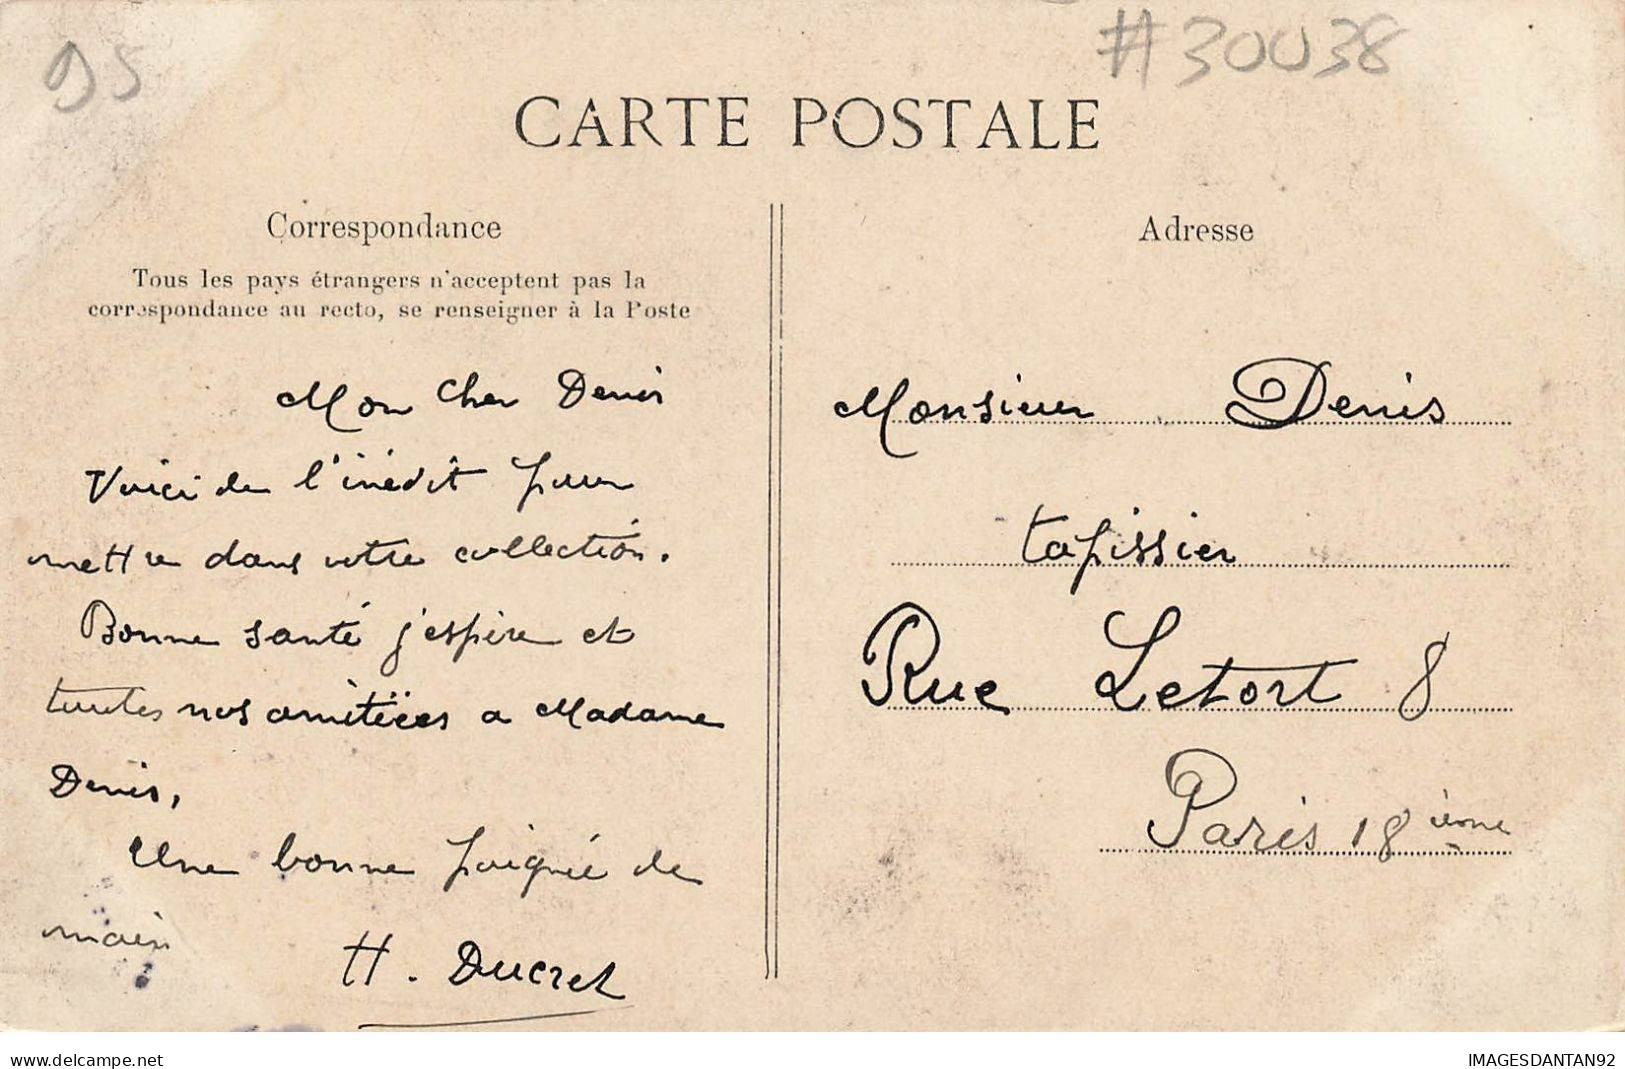 95
#30038
CARTE POSTALE
Correspondance
Tous les pays étrangers n'acceptent pas la
correspondance au recto, se renseigner à la Poste
Mon cher Denis
Voici de l'inédit pour
mettre dans votre collection.
Bonne santé j'espère et
toutes nos amitiées a Madame
Denis,
Une bonne poignée de
main
H. Ducret
Adresse
Monsieur Denis
tapissier
Rue Letort 8
Paris 18 ième
www.delcampe.net
IMAGESDANTAN92